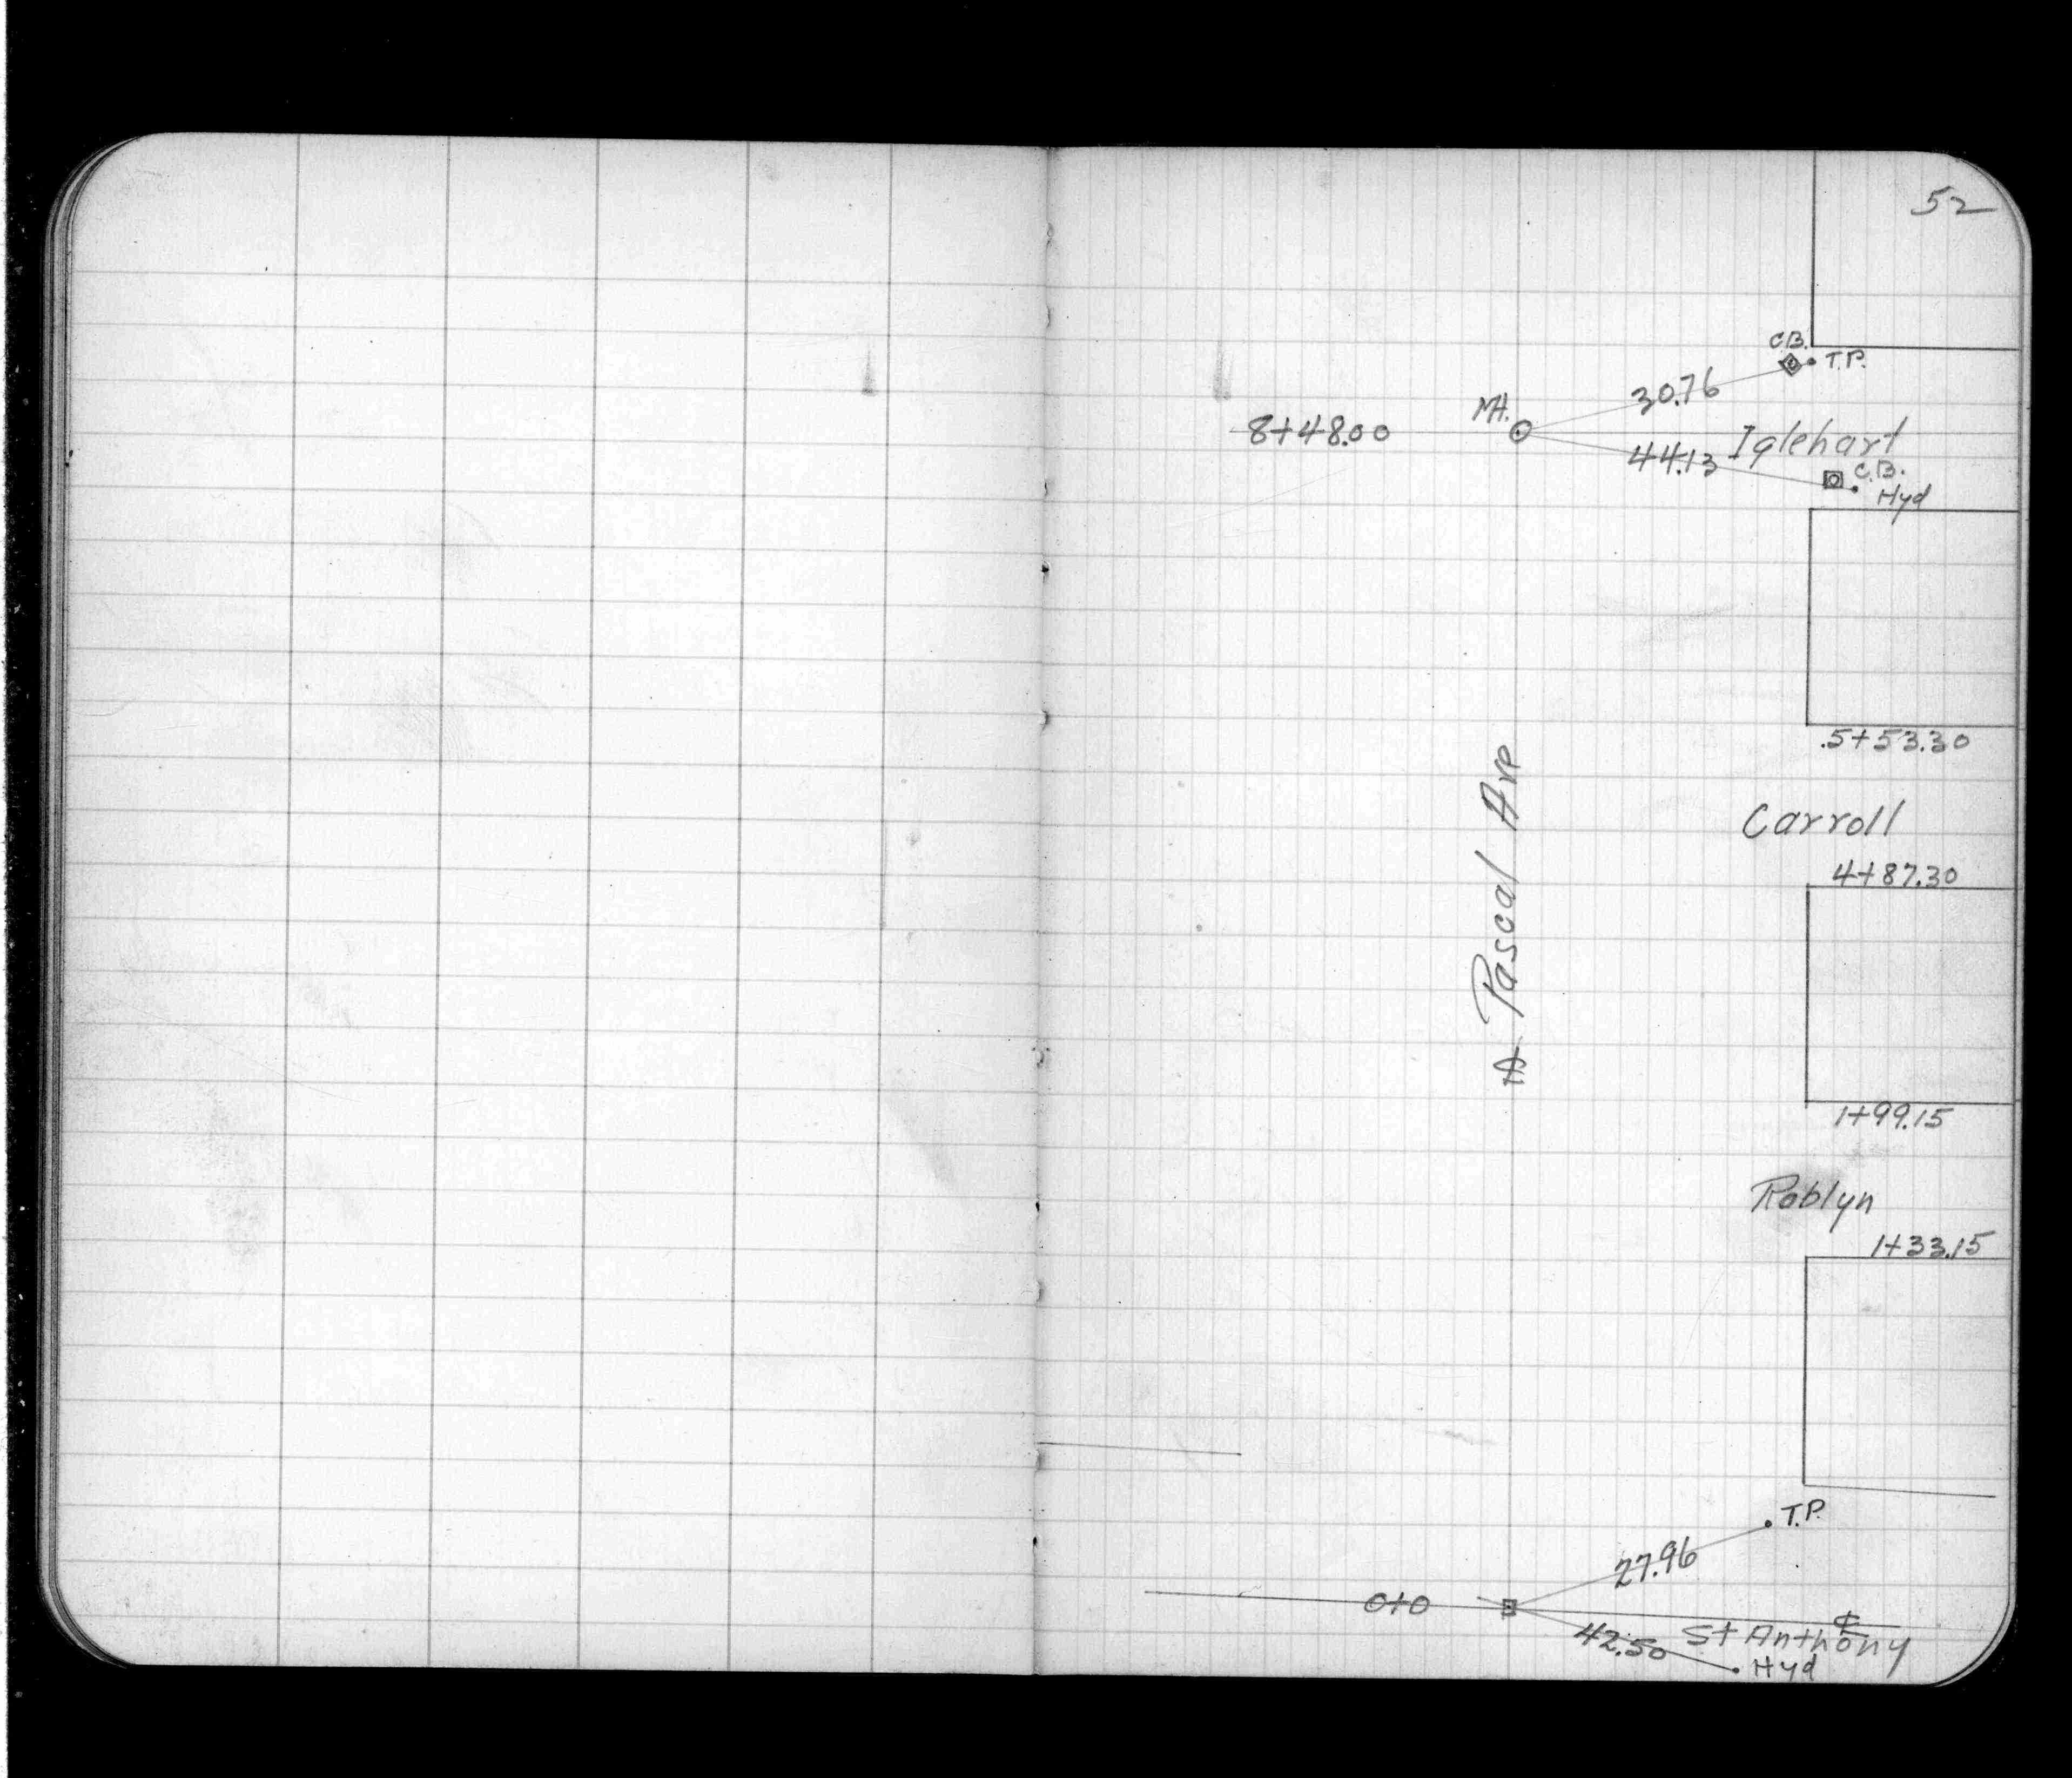 52
C.B.
T.P.
30.76
MH.
8+48.00
Iglehart
44.13
C.B.
Hyd
5+53.30
Carroll
4+87.30
Pascal Ave
1+99.15
Roblyn
1+33.15
T.P.
27.96
0+0
℄
St Anthony
42.50
Hyd